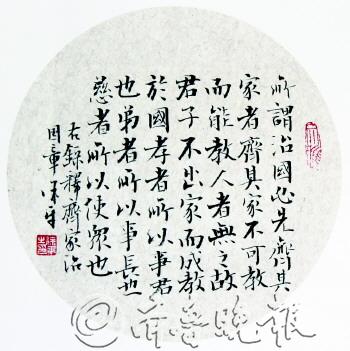 所謂治國必先齊其
家者齊其家不可教
而能教人者無之故
君子不出家而成教
於國孝者所以事君
也弟者所以事長也
慈者所以使眾也
右錄釋齊家治
国章
齐鲁晚報